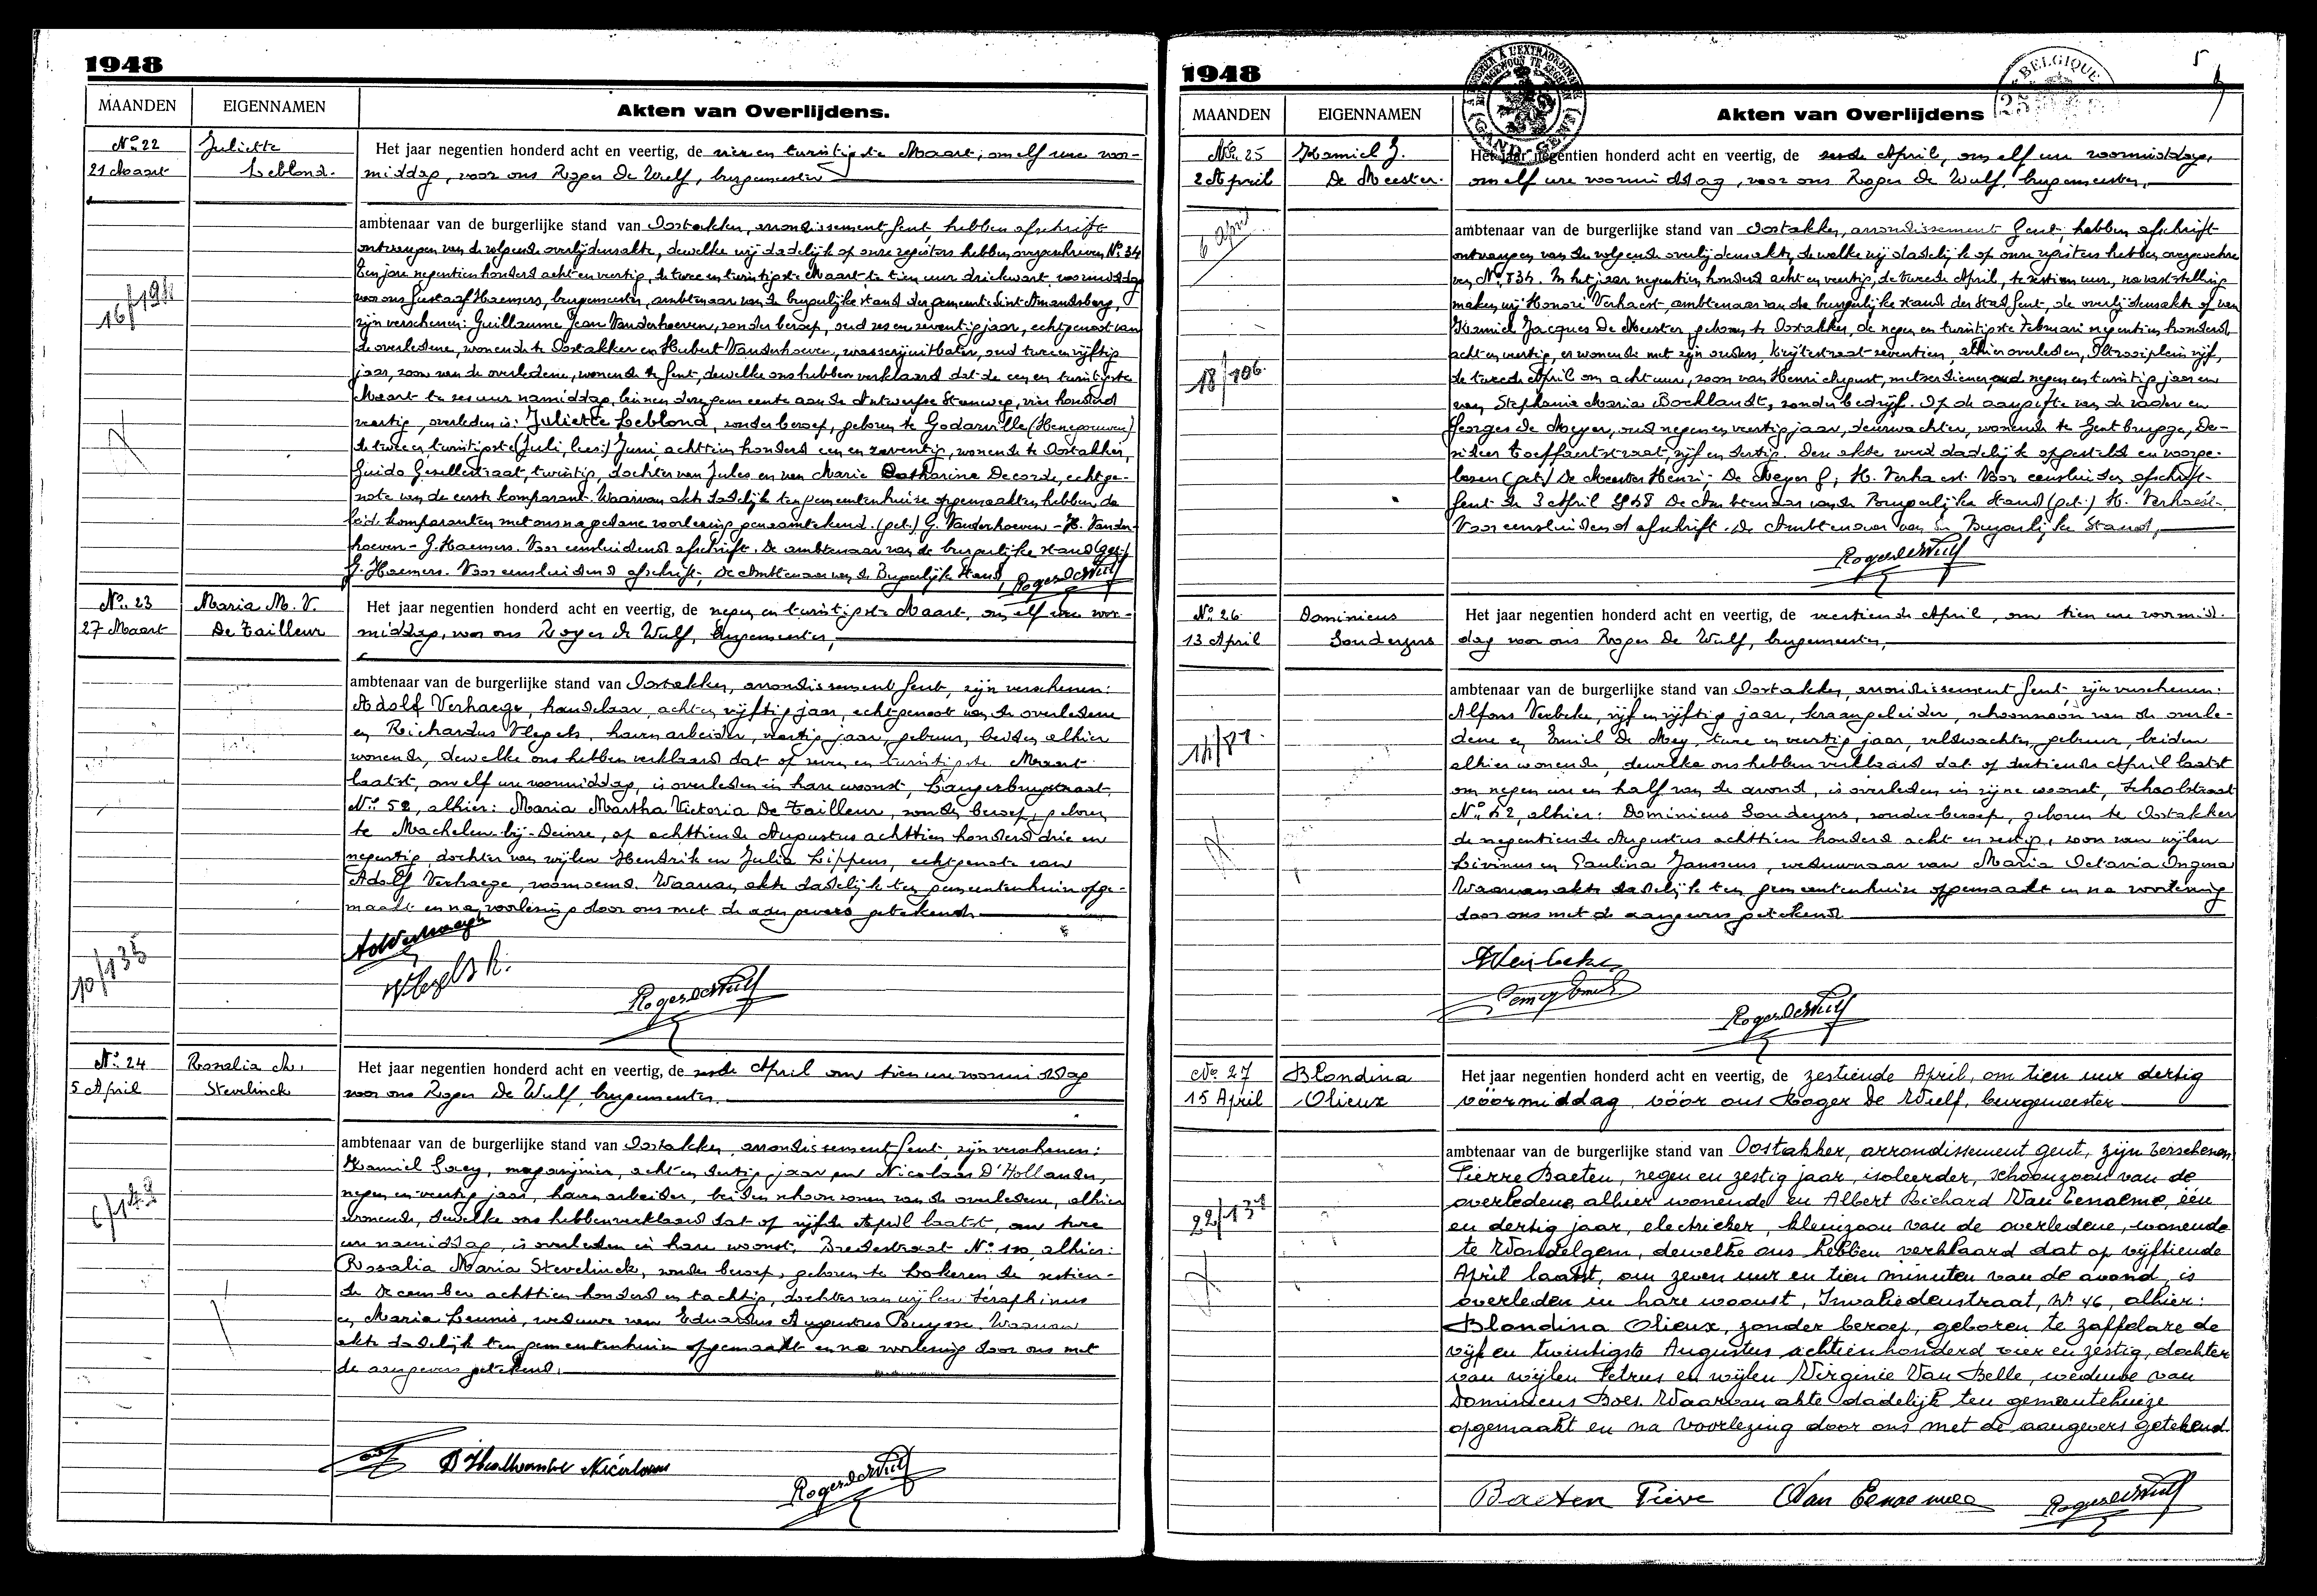 1948
MAANDEN EIGENNAMEN Akten van Overlijdens.
No 22 Juliette
21 Maart Leblond.
Het jaar negentien honderd acht en veertig, de vier en twintigste Maart, om elf ure voor-
middag, voor ons Roger De Wulf, burgemeester
ambtenaar van de burgerlijke stand van Oostakker, arrondissement Gent, hebben afschrift
ontvangen van de volgende overlijdensakte, dewelke wij dadelijk op onze registers hebben overgeschreven No 34
Ten jare negentien honderd acht en veertig, de twee en twintigste Maart te tien uur driekwart voormiddag
voor ons Gustaaf Haemers, burgemeester, ambtenaar van de burgerlijke stand der gemeente Sint Amandsberg,
zijn verschenen: Guillaume Jean Vanderhoeven, zonder beroep, oud zes en zeventig jaar, echtgenoot van
de overledene, wonende te Oostakker en Hubert Vanderhoeven, wasserijuitbater, oud twee en vijftig
jaar, zoon van de overledene, wonende te Gent, dewelke ons hebben verklaard dat de een en twintigste
Maart te zes uur namiddag, binnen dezer gemeente aan de Antwerpse Steenweg, vier honderd
veertig, overleden is: Juliette Leblond, zonder beroep, geboren te Godarville (Henegouwen)
de twee en twintigste (Juli, lees:) Juni, achttien honderd een en zeventig, wonende te Oostakker,
Guido Gezellestraat, twintig, dochter van Jules en van Marie Catharine Decorde, echtge-
note van de eerste komparant. Waarvan akte dadelijk ten gemeentenhuize opgemaakt en hebben de
beide komparanten met ons na gedane voorlezing genaamtekend. (get.) G. Vanderhoeven - H. Vander-
hoeven - G. Haemers. Voor eensluidend afschrift. De ambtenaar van de burgerlijke stand (get.)
G. Haemers. Voor eensluidend afschrift, De Ambtenaar van de Burgerlijke Stand, Roger De Wulf
16/194
No 23 Maria M. V.
27 Maart De Tailleur
Het jaar negentien honderd acht en veertig, de negen en twintigste Maart, om elf ure voor-
middag, voor ons Roger De Wulf, burgemeester,
ambtenaar van de burgerlijke stand van Oostakker, arrondissement Gent, zijn verschenen:
Adolf Verhaege, handelaar, acht en vijftig jaar, echtgenoot van de overledene
en Richardus Vlegels, havenarbeider, veertig jaar, gebuur, beiden alhier
wonende, dewelke ons hebben verklaard dat op zeven en twintigste Maart
laatst, om elf ure voormiddag, is overleden in hare woonst, Langerbrugstraat,
No 52, alhier: Maria Martha Victoria De Tailleur, zonder beroep, geboren
te Machelen-bij-Deinze, op achttiende Augustus achttien honderd drie en
negentig, dochter van wijlen Hendrik en Julia Lippens, echtgenote van
Adolf Verhaege, voornoemd. Waarvan akte dadelijk ten gemeentenhuize opge-
maakt en na voorlezing door ons met de aangevers getekend.
Ad Verhaege
Vlegels R.
Roger De Wulf
10/135
No 24 Rosalia M.
5 April Stevelinck
Het jaar negentien honderd acht en veertig, de zesde April om tien ure voormiddag
voor ons Roger De Wulf, burgemeester.
ambtenaar van de burgerlijke stand van Oostakker, arrondissement Gent, zijn verschenen:
Kamiel Gaey, magazijnier, acht en dertig jaar en Nicolaas D'Hollander,
negen en veertig jaar, havenarbeider, beiden schoonzonen van de overledene, alhier
wonende, dewelke ons hebben verklaard dat op vijfde April laatst, om twee
ure namiddag, is overleden in hare woonst, Bredestraat No 120, alhier:
Rosalia Maria Stevelinck, zonder beroep, geboren te Lokeren de zestien-
de December achttien honderd en tachtig, dochter van wijlen Seraphinus
en Maria Leunis, weduwe van Eduardus Augustus Buysse. Waarvan
akte dadelijk ten gemeentenhuize opgemaakt en na voorlezing door ons met
de aangevers getekend.
D'Hollander Nicolaas
Roger De Wulf
1948
5
BELGIQUE
MAANDEN EIGENNAMEN Akten van Overlijdens
No 25 Kamiel J.
2 April De Meester.
Het jaar negentien honderd acht en veertig, de zesde April, om elf ure voormiddag,
om elf ure voormiddag, voor ons Roger De Wulf, burgemeester,
6 April
ambtenaar van de burgerlijke stand van Oostakker, arrondissement Gent, hebben afschrift
ontvangen van de volgende overlijdensakte, dewelke wij dadelijk op onze registers hebben overgeschre
ven No 834. In het jaar negentien honderd acht en veertig, de tweede April, te zestien uur, na vaststelling
maken wij Honoré Verhaest, ambtenaar van de burgerlijke stand der stad Gent, de overlijdensakte op van
Kamiel Jacques De Meester, geboren te Oostakker, de negen en twintigste Februari negentien honderd
acht en veertig, er wonende met zijn ouders, Krijtestraat zeventien, alhier overleden, plein vijf,
de tweede April om acht uur, zoon van Henri August, metserdiener oud negen en twintig jaar en
van Stephanie Maria Bocklandt, zonder bedrijf. Op de aangifte van de vader en
Georges De Meyer, oud negen en veertig jaar, deurwachter, wonende te Gentbrugge, De-
sideer Toeffaertstraat, vijf en dertig. Deze akte werd dadelijk opgesteld en voorge-
lezen (get.) De Meester Henri - De Meyer G; H. Verhaest. Voor eensluidend afschrift.
Gent de 3 April 1948 De Ambtenaar van de Burgerlijke Stand (get.) H. Verhaest.
Voor eensluidend afschrift. De Ambtenaar van de Burgerlijke Stand,
Roger De Wulf
18/106
No 26 Dominicus
13 April Sonderyns
Het jaar negentien honderd acht en veertig, de veertiende April, om tien ure voormid-
dag voor ons Roger De Wulf, burgemeester,
ambtenaar van de burgerlijke stand van Oostakker, arrondissement Gent, zijn verschenen:
Alfons Verbeke, vijf en vijftig jaar, kraangeleider, schoonzoon van de overle-
dene en Emiel De Mey, twee en veertig jaar, veldwachter, gebuur, beiden
alhier wonende, dewelke ons hebben verklaard dat op dertiende April laatst
om negen ure en half van de avond, is overleden in zijne woonst, Schoolstraat
No 62, alhier: Dominicus Sonderyns, zonder beroep, geboren te Oostakker
de negentiende Augustus achttien honderd acht en zestig, zoon van wijlen
Livinus en Paulina Janssens, weduwnaar van Maria Octavia Ongena
Waarvan akte dadelijk ten gemeentenhuize opgemaakt en na voorlezing
door ons met de aangevers getekend
A Verbeke
Demey Emiel
Roger De Wulf
No 27 Blondina
15 April Olieux
Het jaar negentien honderd acht en veertig, de zestiende April, om tien uur dertig
voormiddag, voor ons Roger De Wulf, burgemeester
ambtenaar van de burgerlijke stand van Oostakker, arrondissement Gent, zijn verschenen
Pierre Baeten, negen en zestig jaar, isoleerder, schoonzoon van de
overledene, alhier wonende en Albert Richard Van Eenaeme, één
en dertig jaar, electrieker, kleinzoon van de overledene, wonende
te Wondelgem, dewelke ons hebben verklaard dat op vijftiende
April laatst, om zeven uur en tien minuten van de avond, is
overleden in hare woonst, Invaliedenstraat, Nr 46, alhier:
Blondina Olieux, zonder beroep, geboren te Zaffelare de
vijf en twintigste Augustus achttienhonderd vier en zestig, dochter
van wijlen Petrus en wijlen Virginie Van Belle, weduwe van
Dominicus Boes. Waarvan akte dadelijk ten gemeentehuize
opgemaakt en na voorlezing door ons met de aangevers getekend.
Baeten Pierre Van Eenaeme Roger De Wulf